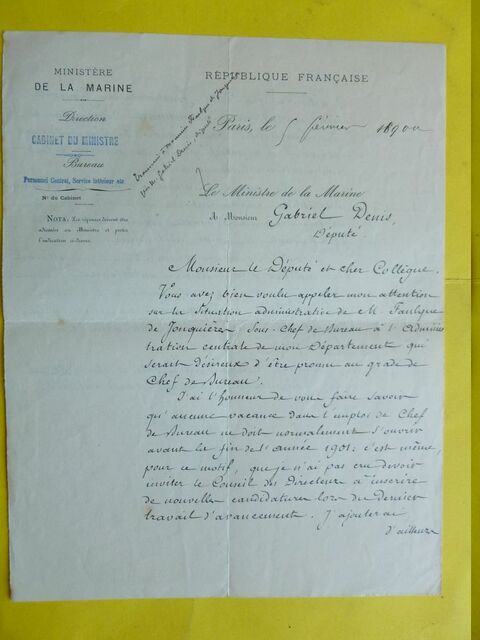 MINISTÈRE
DE LA MARINE
Direction
CABINET DU MINISTRE
Bureau
Personnel Central, Service intérieur etc
No du Cabinet
NOTA. Les réponses doivent être
adressées au Ministre et porter
l'indication ci-dessus.
RÉPUBLIQUE FRANÇAISE
Transmis à Monsieur Faulque de Jonquières
par M. Gabriel Denis, député
Paris, le 5 février 1900
Le Ministre de la Marine
A Monsieur Gabriel Denis,
Député
Monsieur le Député et cher Collègue.
Vous avez bien voulu appeler mon attention
sur la situation administrative de M. Faulque
de Jonquières, Sous-Chef de Bureau à l'Adminis
tration centrale de mon Département qui
serait désireux d'être promu au grade de
Chef de Bureau.
J'ai l'honneur de vous faire savoir
qu'aucune vacance dans l'emploi de Chef
de Bureau ne doit normalement s'ouvrir
avant la fin de l'année 1901: c'est même,
pour ce motif, que je n'ai pas cru devoir
inviter le Conseil des Directeurs à inscrire
de nouvelles candidatures lors du dernier
travail d'avancement. J'ajouterai
d'ailleurs